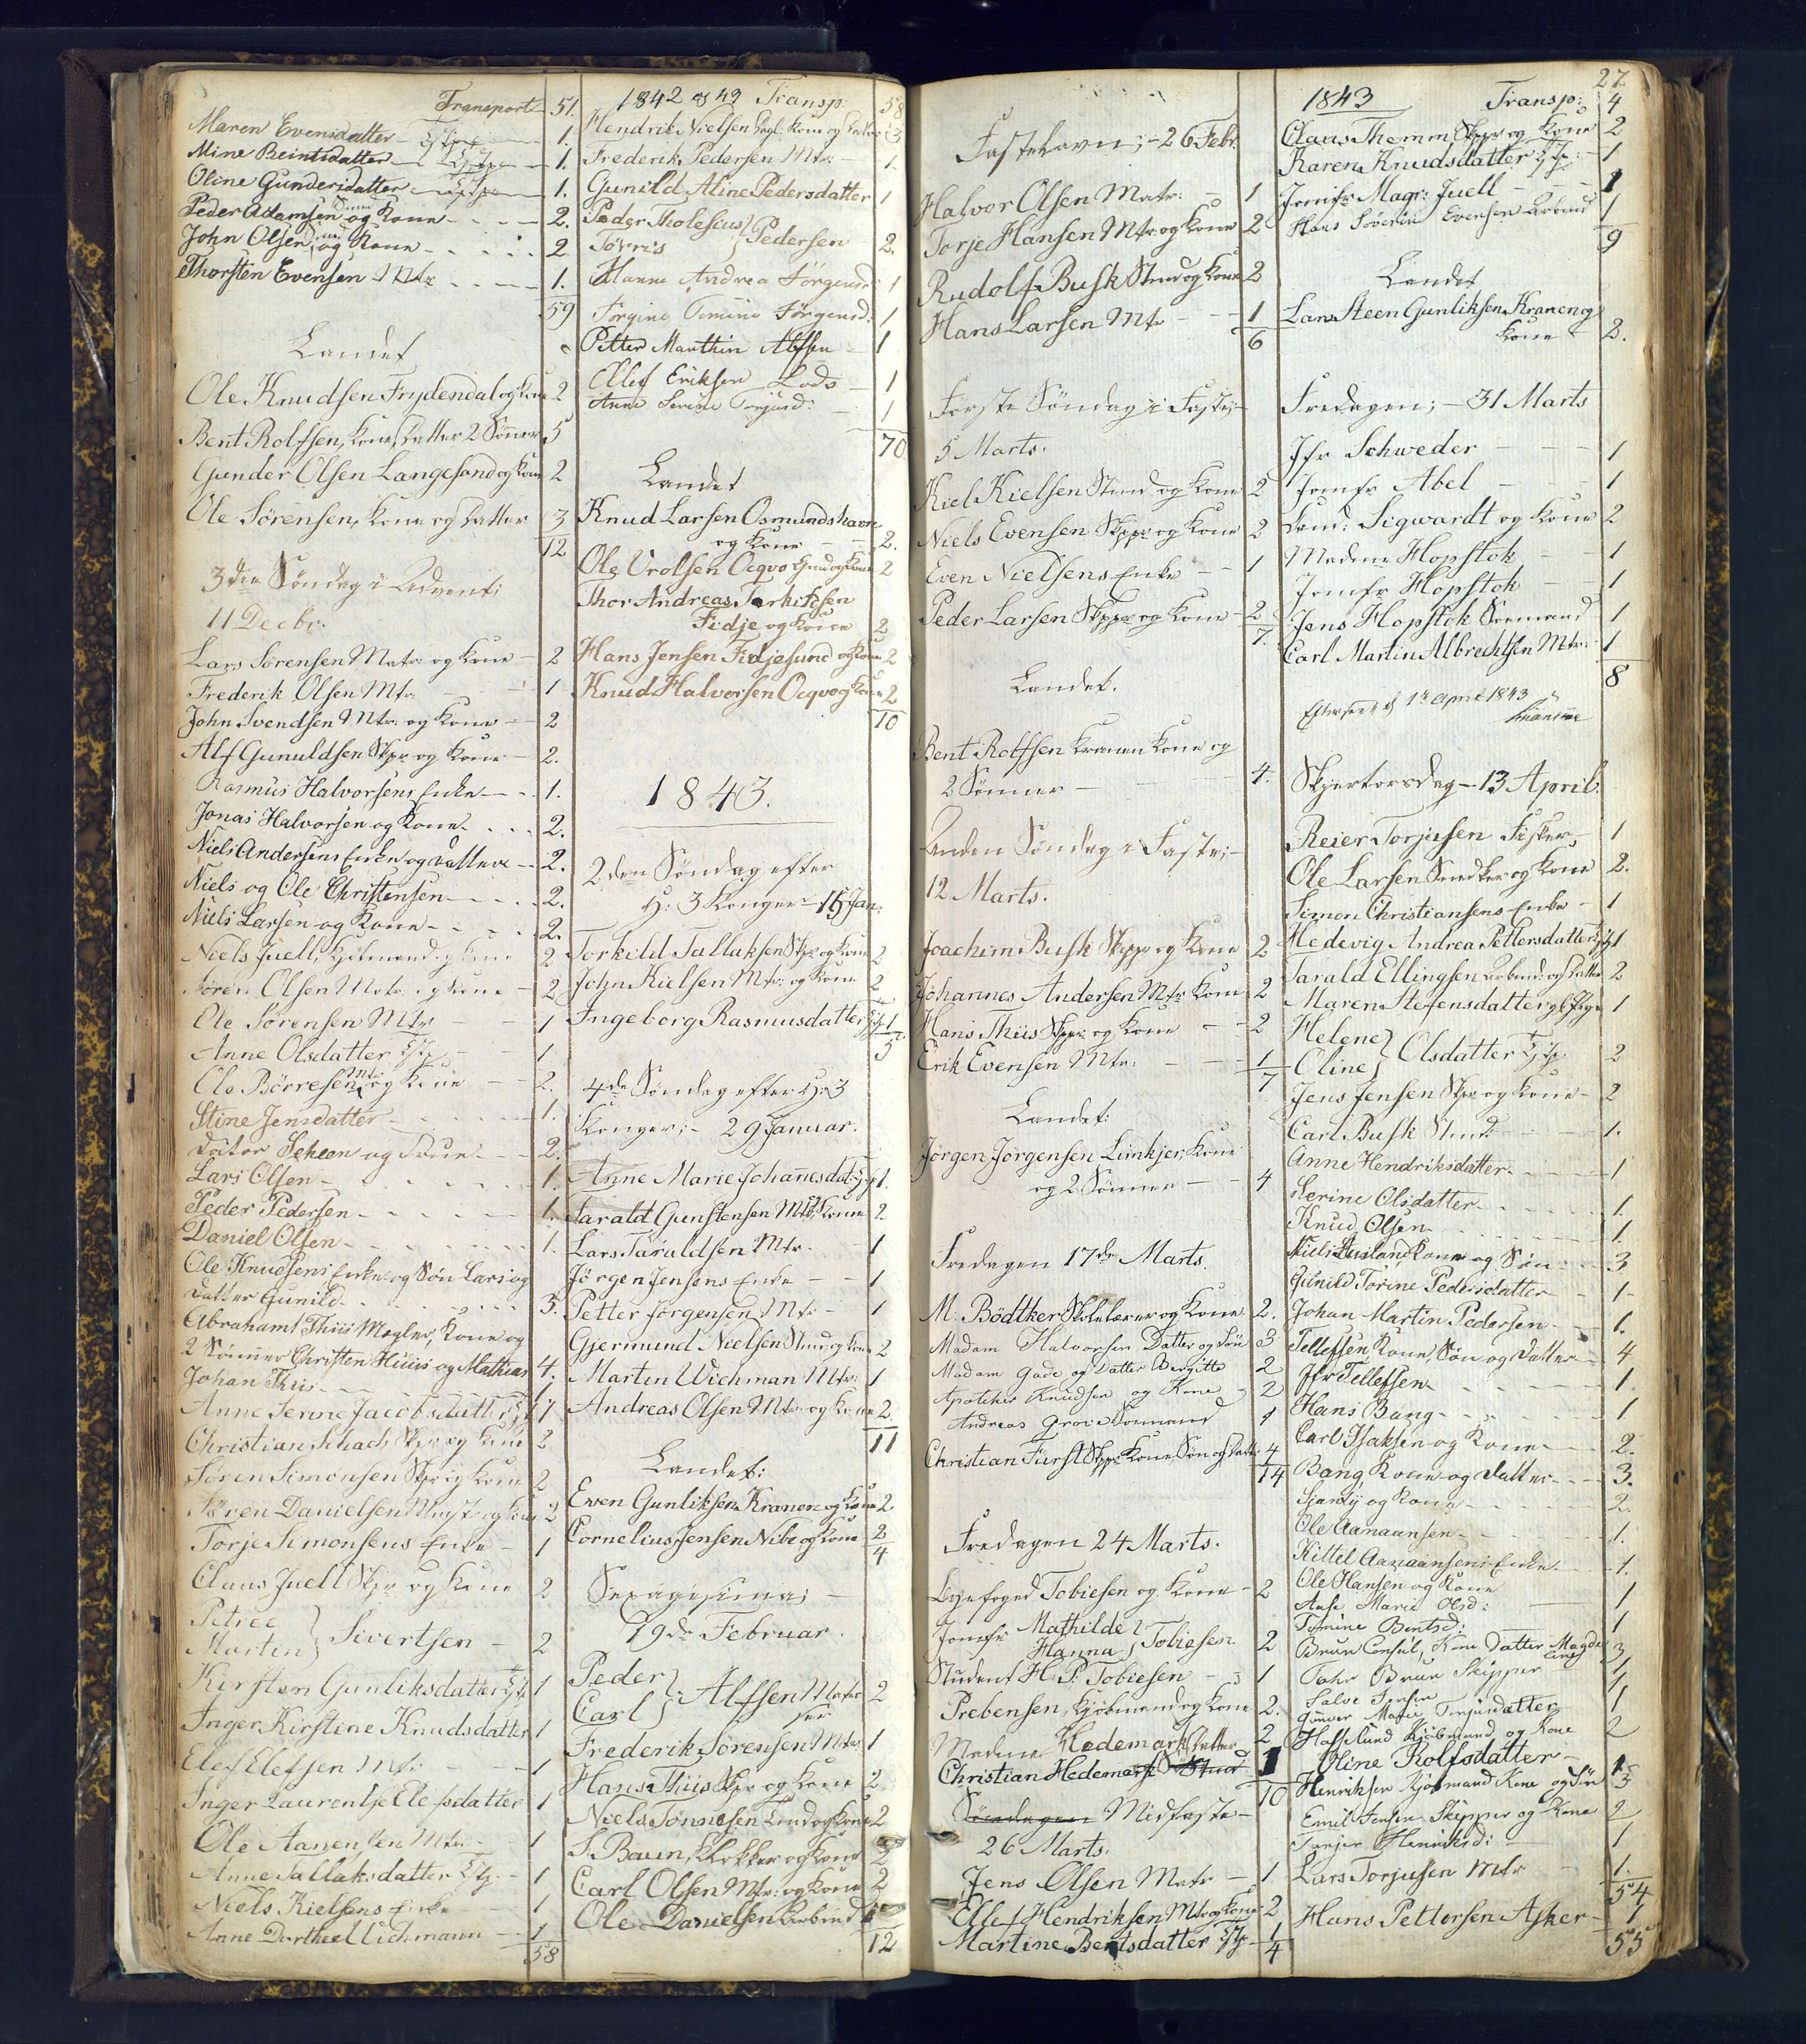 Transport 51.
Maren Evensdatter 1.
Mine Beintsdatter 1.
Oline Gundersdatter 1.
Peder Adamsen og Kone 2.
John Olsen og Kone 2
Thorsten Evensen Mtr 1.
59
Landet
Ole Knudsen Frydendal og Kone 2
Bent Rolfsen, Kone, Datter 2 Sønner 5
Gunder Olsen Langesand og Kone 2
Ole Sørensen, Kone og Datter 3
12
3die Søndag i Advent;
11 Decbr.
Lars Sørensen Matr og Kone 2
Frederik Olsen Mtr. 1
John Svendsen Mtr. og Kone 2
Alf Gunuldsen Skpr og Kone 2.
Rasmus Halvorsens Enke 1.
Jonas Halvorsen og Kone 2.
Niels Andersens Enke og Datter 2.
Niels og Ole Christensen 2.
Niels Larsen og Kone 2.
Niels Juell, og Kone 2
Søren Olsen Matr. og Kone 2
Ole Sørensen Mtr 1
Anne Olsdatter 1.
Ole Børresen Mtr og Kone 2.
Stine Jensdatter 1.
Scheen og Frue 2.
Lars Olsen 1.
Peder Pedersen 1.
Daniel Olsen 1.
Ole Knudsens Enke og Søn Lars og
Datter Gunild 3.
Abraham Thiis Mægler, Kone og
2 Sønner Christen Thiis og Mathias 4.
Johan Thiis 1.
Anne Serine Jacobsdatter 1
Christian Schach Skpr og Kone 2
Søren Simonsen Skpr og Kone 2
Søren Danielsen og Kone 2
Torje Simonsens Enke 1
Claus Juell Skpr og Kone 2
Petree
Martin } Sivertsen 2
Kirsten Gunliksdatter 1
Inger Kirstene Knudsdatter 1
Elef Elefsen Mtr 1
Inger Laurentje Elefsdatter 1
Ole Aanensen Mtr 1
Anne Tallaksdatter 1
Niels Kielsens Enke 1
Anne Dorthe Wichmann 1
58
1842 & 43 Transp: 58
Hendrik Nielsen Kone og 3
Frederik Pedersen Mtr. 1.
Gunild Aline Pedersdatter 1
Peder Tholesius
Tørris } Pedersen 2.
Hanne Andrea Jørgensd. 1
Jørgine Tomine Jørgensd. 1
Petter Marthin Alfsen 1
Ellef Eriksen Lods 1
Anne Serine Torjusd: 1
70
Landet
Knud Larsen Osmundshavn
og Kone 2.
Ole Orolsen Ocqvo og Kone 2
Thor Andreas Terkildsen
Fidje og Kone 2
Hans Jensen Fidjesund og Kone 2
Knud Halvorsen Ocqvo og Kone 2
10
1843.
2den Søndag efter
H: 3 Konger 15 Jan.
Torkild Tallaksen Skpr og Kone 2
John Kielsen Mtr. og Kone 2
Ingeborg Rasmusdatter 1
5
4de Søndag efter H: 3
Konger; 29 Januar.
Anne Marie Johannesdat. 1.
Tarald Gunstensen Mtr, Kone 2
Lars Taraldsen Mtr. 1
Jørgen Jensens Enke 1
Petter Jørgensen Mtr 1
Gjermund Nielsen og Kone 2
Martin Wichman Mtr: 1
Andreas Olsen Mtr. og Kone 2
11
Landet:
Even Gunliksen Kranen og Kone 2.
Cornelius Jensen Nibe og Kone 2
4
Sexagesima;
19de Februar.
Peder
Carl } Alfsen 2
Frederik Sørensen Mtr 1
Hans Thiis Skpr og Kone 2
Niels Tønnesen og Kone 2
S. Baun, Klokker og Kone 2
Carl Olsen Mtr. og Kone 2
Ole Danielsen Arbeid 1
12
27.
Fastelavn; 26 Febr.
Halvor Olsen Matr. 1
Torje Hansen Mtr og Kone 2
Rudolf Busk og Kone 2
Hans Larsen Mtr 1
6
Første Søndag i Faste;
5 Marts.
Kiel Kielsen og Kone 2
Niels Evensen Skppr og Kone 2
Even Nielsens Enke 1
Peder Larsen Skppr og Kone 2
7.
Landet.
Bent Rolfsen Kranen Kone og
2 Sønner 4.
Anden Søndag i Faste;
12 Marts.
Joachim Busk Skppr og Kone 2
Johannes Andersen Mtr Kone 2
Hans Thiis Skppr og Kone 2
Erik Evensen Mtr: 1
7
Landet:
Jørgen Jørgensen Kone
og 2 Sønner 4
Fredagen 17de Marts.
M. Bödtker Skolelærer og Kone 2.
Madam Halvorsen Datter og Søn 3
Madam Gade og Datter Birgitte 2
Apotheker Knudsen og Kone 2
Andreas Grove Sømand 1
Christian Fürst Skppr Kone Søn og Datter 4
14
Fredagen 24 Marts.
Byefoged Tobiesen og Kone 2
Jomfr Mathilde
Hanna } Tobiesen 2
Student H. P. Tobiesen 1
Prebensen, Kjøbmand og Kone 2.
Madme Hedemark, Datter 2
Christian Hedemark Stud 1
10
Søndagen Midfaste
26 Marts.
Jens Olsen Matr 1
Ellef Hendriksen Mtr og Kone 2
Martine Bentsdatter 1
4
1843 Transp: 4
Claus Themm, Skpr og Kone 2
Karen Knudsdatter 1
Jomfr Magr: Juell 1
Hans Søverin Evensen Arbeid 1
9
Landet
Lars Steen Gunliksen Kranen og
Kone 2.
Fredagen; 31 Marts
Jfr Schweder 1
Jomfr Abel 1
Cand: Sigwardt og Kone 2
Madme Hopstok 1
Jomfr Hopstok 1
Jens Hopstok Sømand 1
Carl Martin Albrechtsen Mtr: 1
8
Efterseet d 1te April 1843
Skjertorsdag 13 April.
Reier Torjusen Fisker 1
Ole Larsen Snedker og Kone 2.
Simon Christiansens Enke 1
Hedevig Andrea Pettersdatter 1
Tarald Ellingsen Arbmd: og Datter 2
Maren Stefensdatter 1
Helene
Oline } Olsdatter 2
Jens Jensen Skpr og Kone 2
Carl Busk 1.
Anne Hendriksdatter 1
Serine Olsdatter 1.
Knud Olsen 1.
Niels Kone og Søn 3
Gunild Torine Pedersdatter 1
Johan Martin Pedersen 1.
Tellefsen Kone, Søn og Datter 4
Jfr Tellefsen 1.
Hans Bang 1
Carl Isaksen og Kone 2.
Bang Kone og Datter 3.
og Kone 2.
Ole Aanaansen 1.
Kittel Aanaansens Enke 1.
Ole Hansen og Kone
Marie Olsd: 1
Tomine Bentsd: 1
Bruun Consul, Kone Datter Magda 3
Bruun Skipper 1
Salve Jensen 1
Gunvor Marie Torjusdatter
Hasselund Kjøbmand og Kone 2
Oline Rolfsdatter 1
Henriksen Kjøbmand Kone og Søn 3
Emil Jensen Skipper og Kone 2
Henriksd: 1
Lars Torjusen Mtr 1.
54
Hans Pettersen Asker 1
55